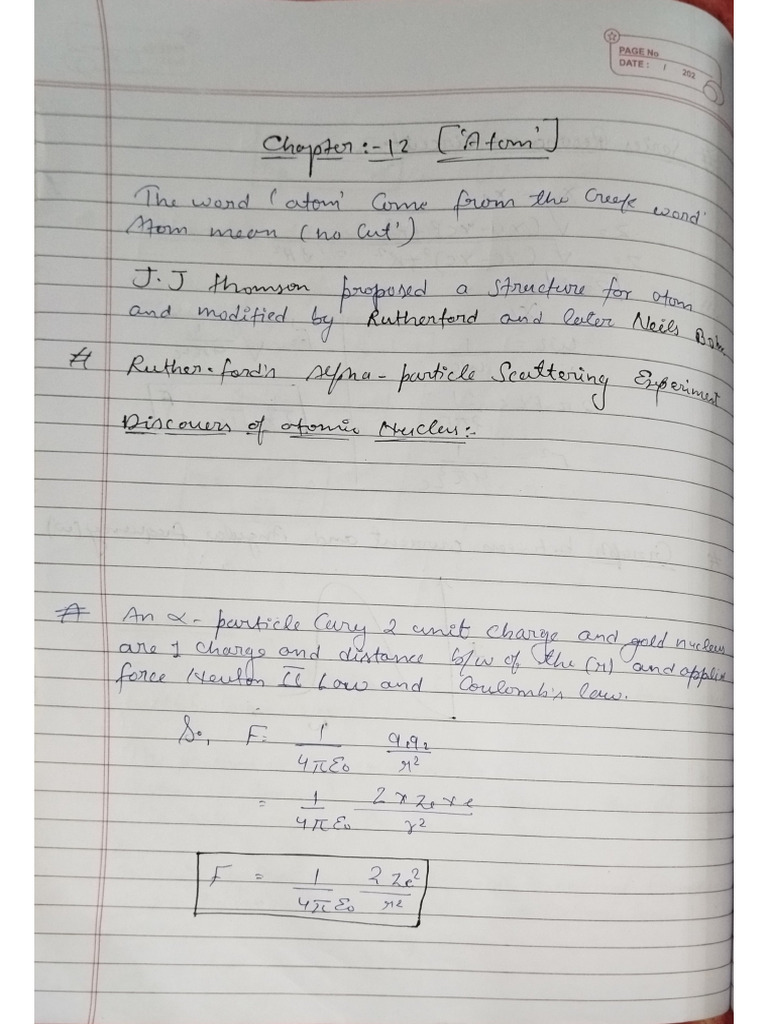 PAGE No
DATE : / 202
Chapter :- 12 ['Atom']
The word 'atom' Come from the Greek word
Atom mean (no Cut')
J.J thomson proposed a structure for atom
and modified by Rutherford and later Neils Bohr
# Ruther-ford's Alpha-particle Scattering Experiment
Discovers of atomic Nucleus:-
# An α-particle Cary 2 unit charge and gold nucleus
are 1 charge and distance b/w of the (r) and applix
force Newton II Law and Coulomb's law.
So, F = 1/4πε₀ q₁q₂/r²
= 1/4πε₀ 2 x Ze x e/r²
F = 1/4πε₀ 2Ze²/r²